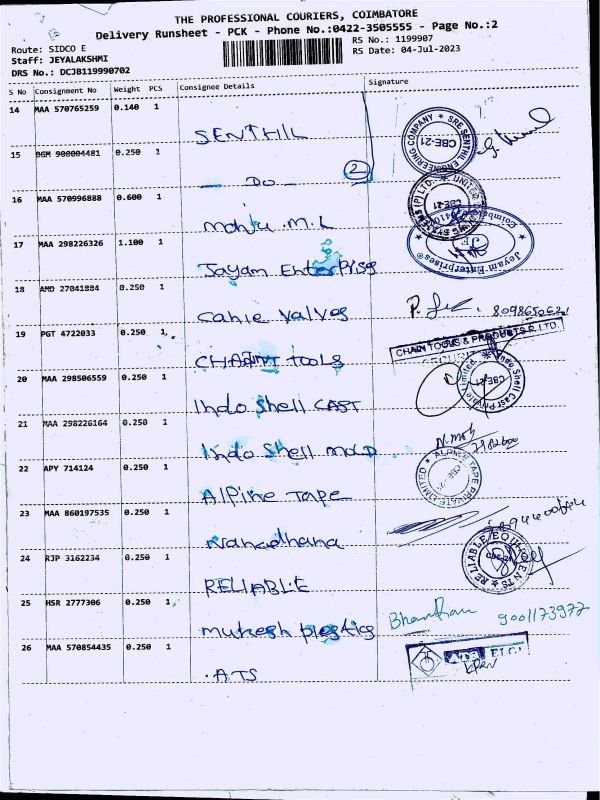 THE PROFESSIONAL COURIERS, COIMBATORE
Delivery Runsheet - PCK - Phone No.:0422-3505555 - Page No.:2
Route: SIDCO E
RS No.: 1199907
Staff: JEYALAKSHMI
RS Date: 04-Jul-2023
DRS No.: DCJB119990702
S No Consignment No Weight PCS Consignee Details Signature
14 MAA 570765259 0.140 1 SENTHIL
SRE SENTHIL ENGINEERING COMPANY CBE-21
15 BGM 900004481 0.250 1 — Do — 2
16 MAA 570996888 0.600 1 Manju M.L
CBE-21
17 MAA 298226326 1.100 1 Jayam Enterprises
Jeyam Enterprises® JE Coimbatore
18 AMD 27041884 0.250 1 Cahie Valves
19 PGT 4722033 0.250 1 CHAINT TOOLS
CHAIN TOOLS & PRODUCTS P. LTD.
SECURITY
20 MAA 298506559 0.250 1 Indo Shell CAST
Indo Shell Cast Private Limited CBE-21
21 MAA 298226164 0.250 1 Indo Shell MOLD
22 APY 714124 0.250 1 Alpine TAPE
ALPINE TAPE PRIVATE LIMITED CBE-21
23 MAA 860197535 0.250 1 Nanadhana
24 RJP 3162234 0.250 1 RELIABLE
RELIABLE EQUIPMENTS CBE-21
25 HSR 2777306 0.250 1 mukesh plastics 9001173977
26 MAA 570854435 0.250 1 .ATS
ELGI